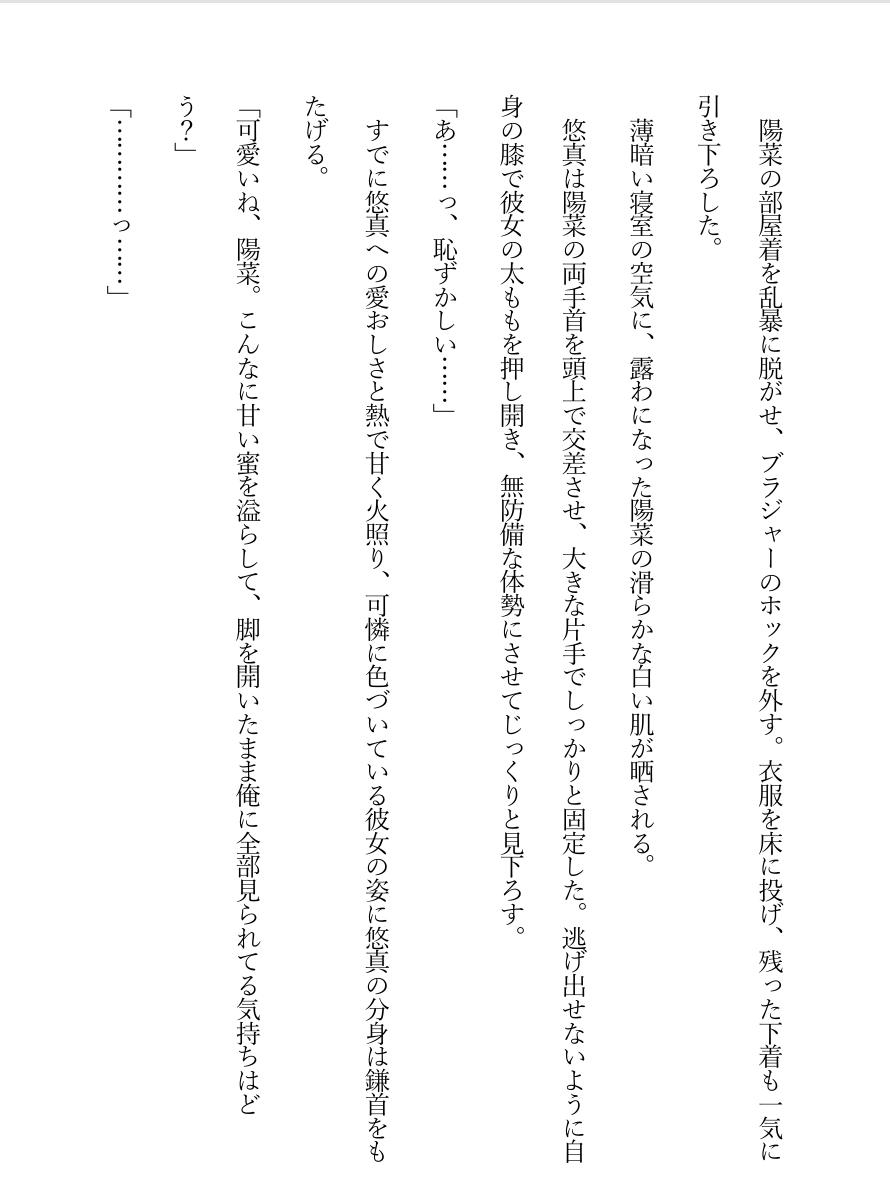 陽菜の部屋着を乱暴に脱がせ、ブラジャーのホックを外す。衣服を床に投げ、残った下着も一気に
引き下ろした。
薄暗い寝室の空気に、露わになった陽菜の滑らかな白い肌が晒される。
悠真は陽菜の両手首を頭上で交差させ、大きな片手でしっかりと固定した。逃げ出せないように自
身の膝で彼女の太ももを押し開き、無防備な体勢にさせてじっくりと見下ろす。
「あ……っ、恥ずかしい……」
すでに悠真への愛おしさと熱で甘く火照り、可憐に色づいている彼女の姿に悠真の分身は鎌首をも
たげる。
「可愛いね、陽菜。こんなに甘い蜜を溢らして、脚を開いたまま俺に全部見られてる気持ちはど
う？」
「…………っ……」